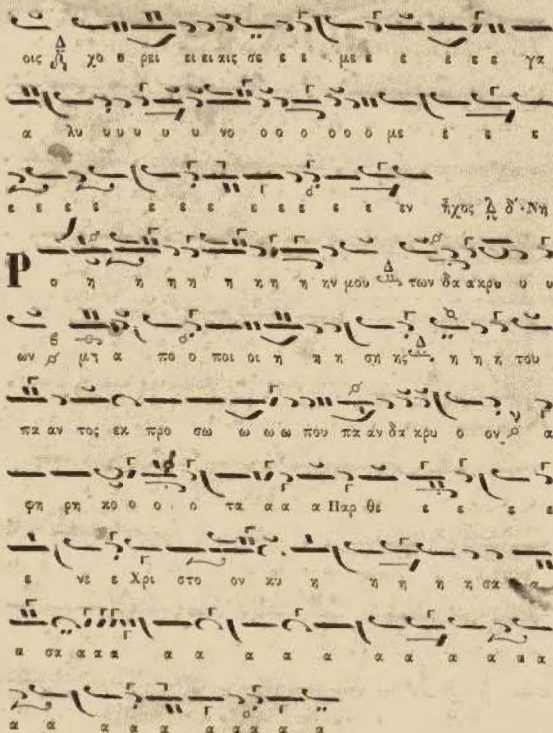 οις Δ χο υ ρει ει ει αις σε ε ε με ε ε ε ε ε γα
α λυ υ υ υ υ υ νο ο ο ο ο ο ο με ε ε ε ε
ε ε ε ε ε ε ε ε ε ε ε ε εν ἦχος δ'· Νη
Ρ ο η η η η η κη η ην μου Δ των δα α κρυ υ υ
ων μη α πο ο ποι οι ή η η ση ης Δ η η η του
πα αν τος εκ προ σω ω ω ω που πα άν δα κρυ ο ον α
φη ρη κο ο ο ο τα α α α Παρ θε ε ε ε ε
ε νε ε Χρι στο ον κυ η η η η η σα α
α σα α α α α α α α α α α α α α
α α α α α α α α α α